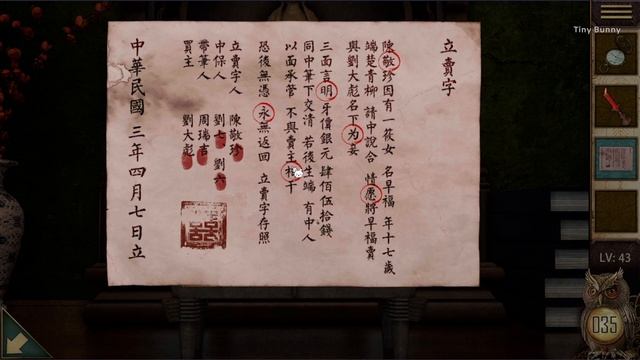 立賣字
陳敬珍因有一筱女 名早福 年十七歲
端楚青柳 請中說合 情愿將早福賣
與劉大彪名下为妾
三面言明 牙價銀元 肆佰伍拾錢
同中筆下交清 若後生端 有中人
以面承管 不與賣主相干
恐後無憑 永無返回 立賣字存照
立賣字人 陳敬珍
中保人 劉七 劉六
帶筆人 周瑞吉
買主 劉大彪
中華民國 三年四月七日立
Tiny Bunny
LV: 43
035